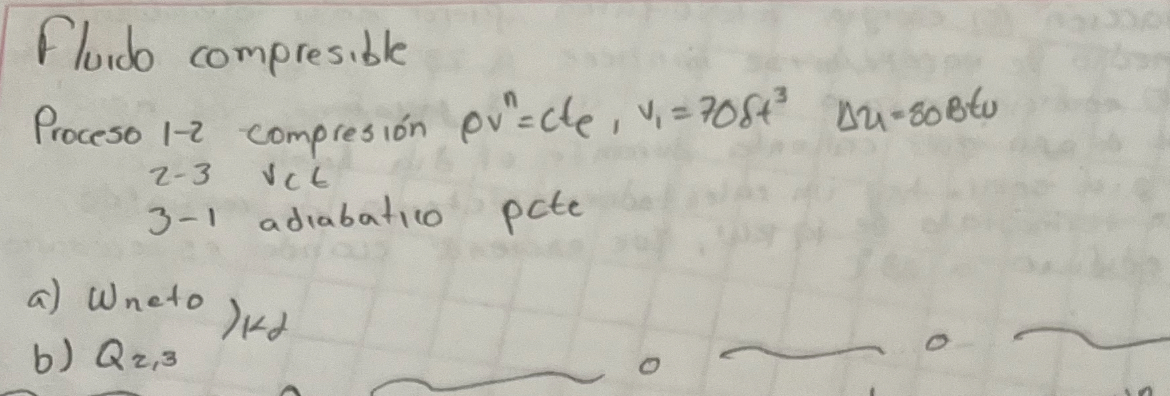 Fluido compresible
Proceso 1-2 compresión pvⁿ=cte, v₁=70ft³ Δu=80Btu
2-3 vct
3-1 adiabatico pcte
a) Wneto
b) Q2,3